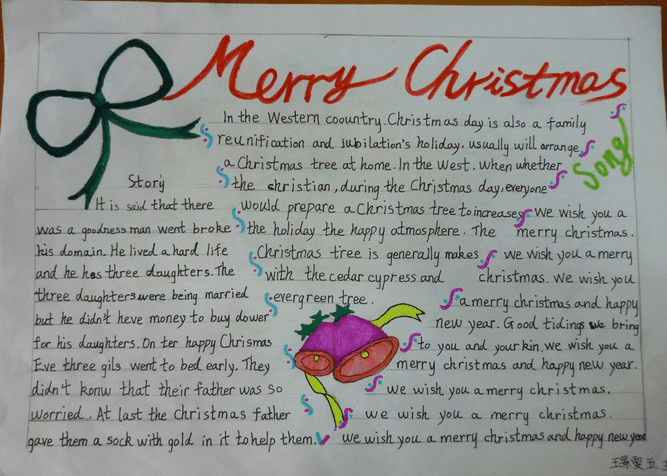 Merry Christmas
In the Western coountry. Christmas day is also a family
reunification and jubilation's holiday. usually will arrange
a Christmas tree at home. In the West. when whether
the christian, during the Christmas day, everyone
would prepare a Christmas tree to increases
the holiday the happy atmosphere. The
Christmas tree is generally makes
with the cedar cypress and
evergreen tree.
Story
It is said that there
was a goodness man went broke
his domain. He lived a hard life
and he has three daughters. The
three daughters were being married
but he didn't heve money to buy dower
for his daughters. On ter happy Chrismas
Eve three gils went to bed early. They
didn't konw that their father was so
worried. At last the Christmas father
gave them a sock with gold in it to help them.
Song
we wish you a
merry christmas.
we wish you a merry
christmas. we wish you
a merry christmas and happy
new year. Good tidings we bring
to you and your kin. we wish you a
merry christmas and happy new year.
we wish you a merry christmas.
we wish you a merry christmas.
we wish you a merry christmas and happy new year